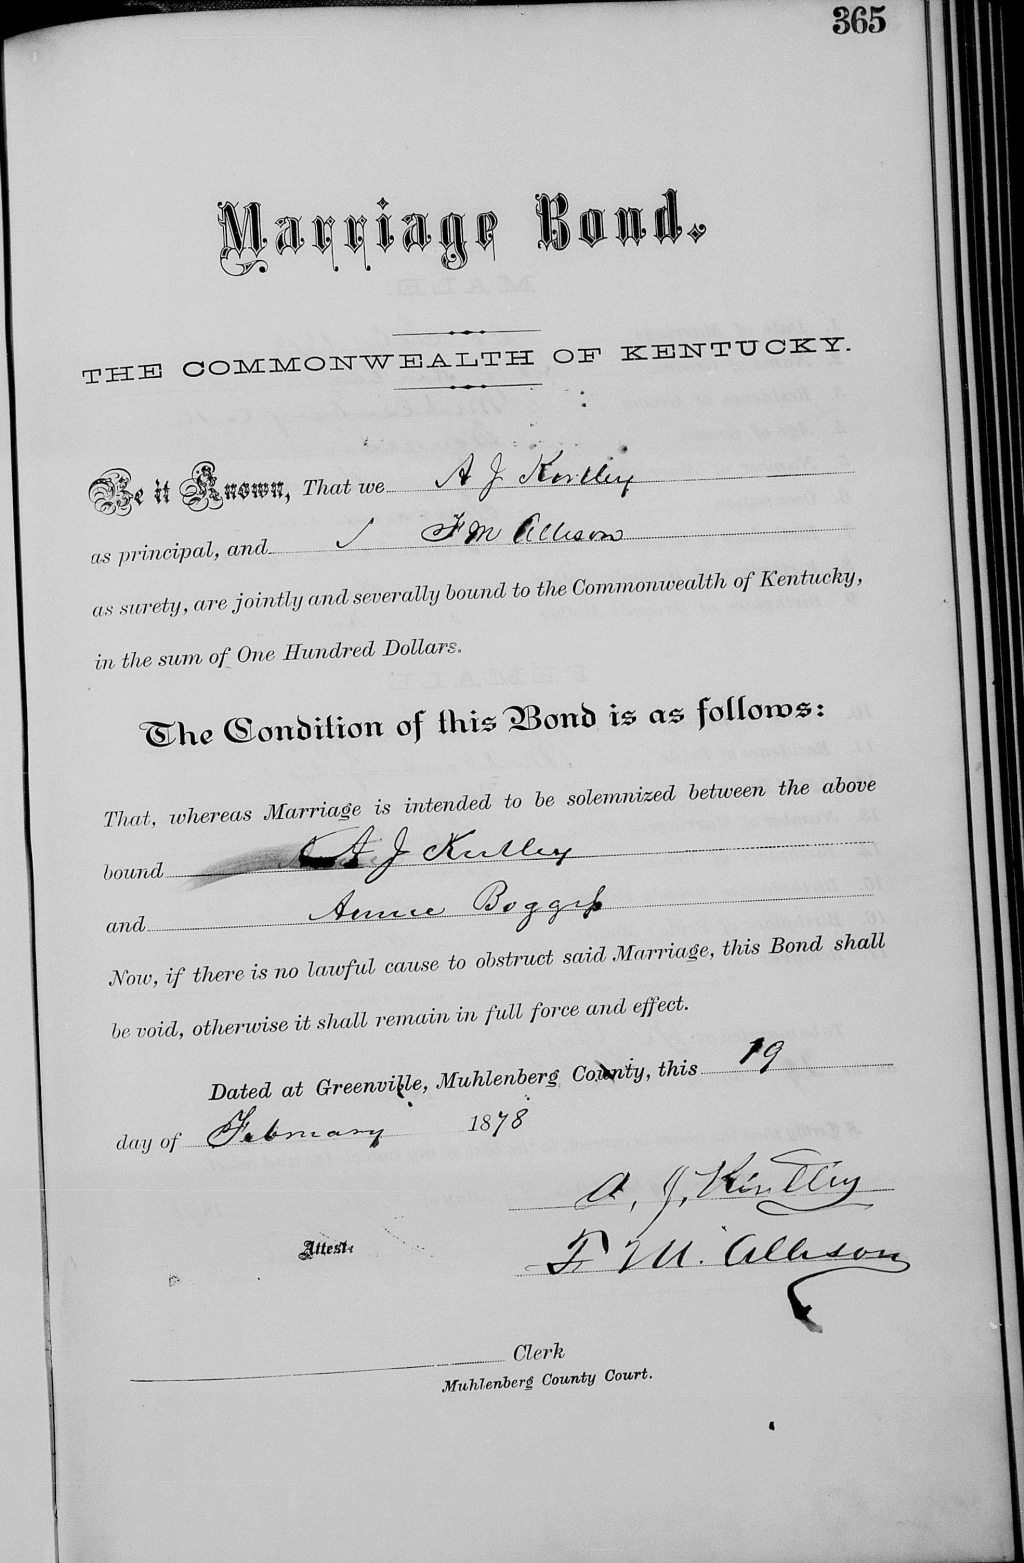 365
Marriage Bond.
THE COMMONWEALTH OF KENTUCKY.
Be it Known, That we A J Kirtley
as principal, and F M Allison
as surety, are jointly and severally bound to the Commonwealth of Kentucky,
in the sum of One Hundred Dollars.
The Condition of this Bond is as follows:
That, whereas Marriage is intended to be solemnized between the above
bound A J Kirtley
and Annie Boggess
Now, if there is no lawful cause to obstruct said Marriage, this Bond shall
be void, otherwise it shall remain in full force and effect.
Dated at Greenville, Muhlenberg County, this 19
day of February 1878
A. J. Kirtley
Attest:
F. M. Allison
Clerk
Muhlenberg County Court.